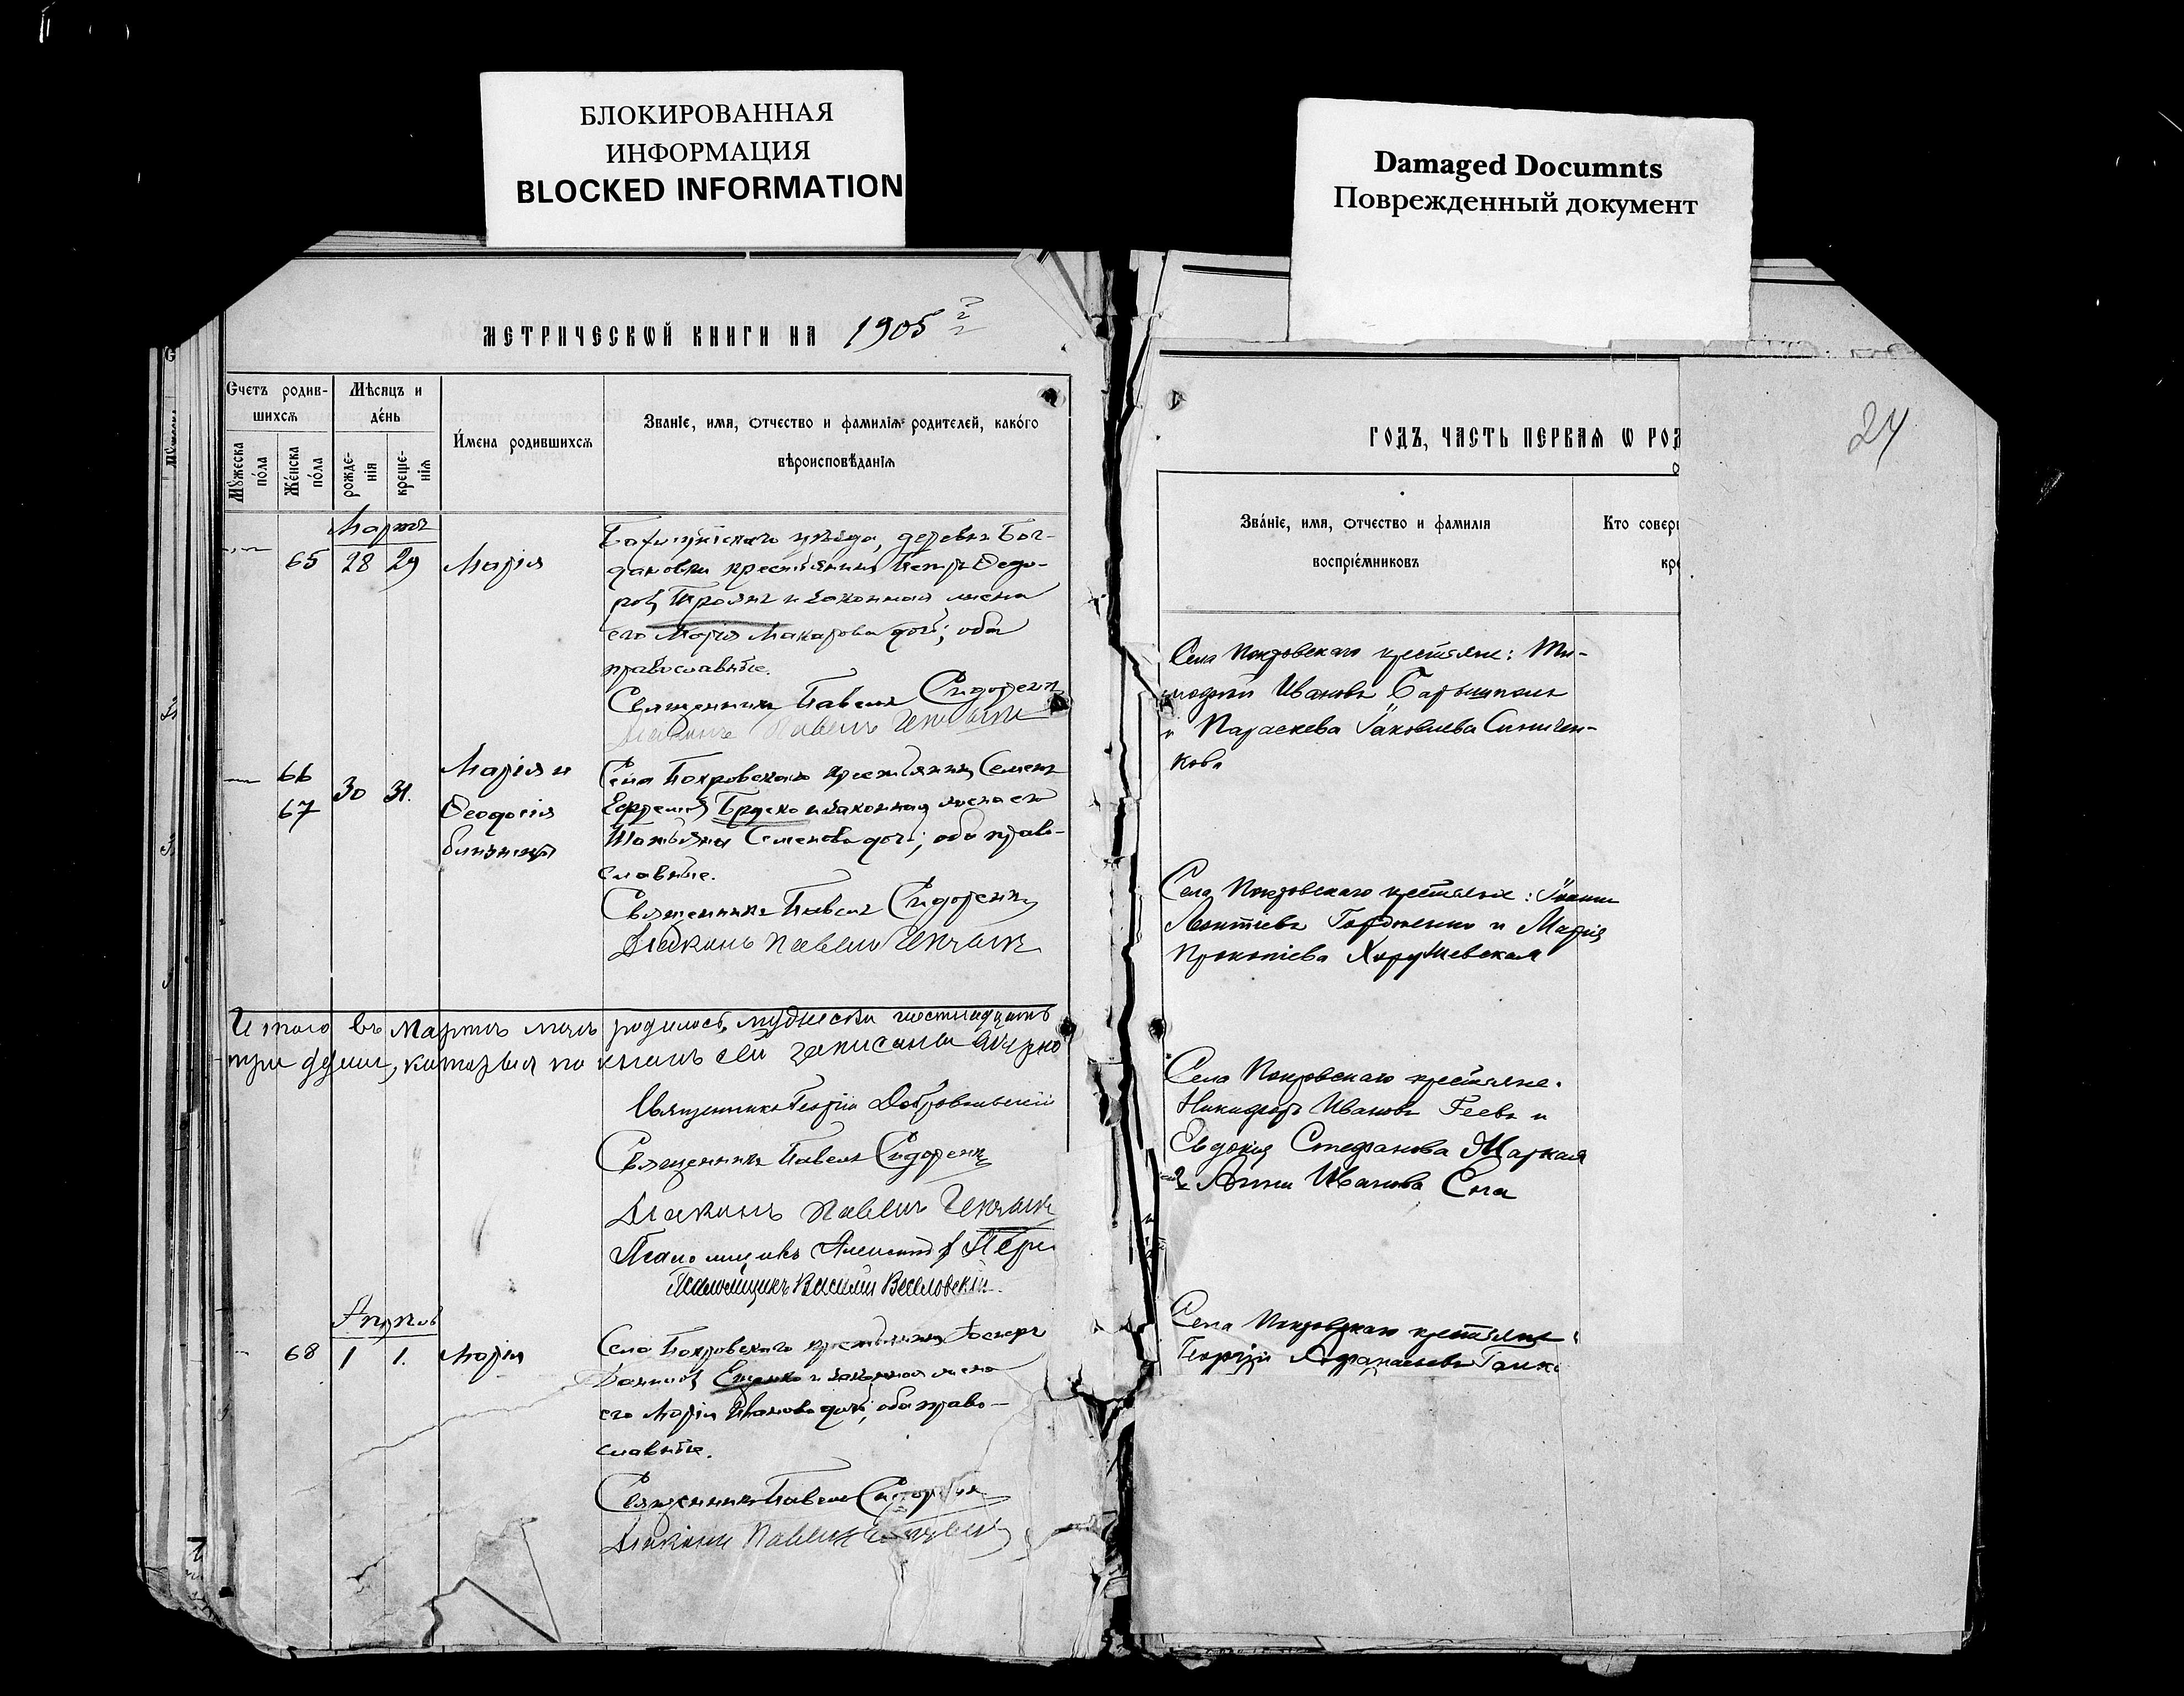 БЛОКИРОВАННАЯ
ИНФОРМАЦИЯ
BLOCKED INFORMATION
Damaged Documnts
Поврежденный документ
МЕТРИЧЕСКОЙ КНИГИ НА 1905
Счетъ родив-
шихсѧ
Мѣсяцъ и
де́нь
И́мена родившихсѧ
Званіе, имя, отчество и фамилія родителей, како́го
вѣроисповѣданія
Мꙋжеска
по́ла
Же́нска
по́ла
рожде-
нія
креще-
нія
Мартъ
65 28 29 Марія
уѣзда, деревни Бог-
дановки крестьянинъ Петръ Ѳедо-
ровъ Троянъ и законная жена
его Марія Макарова дочь; оба
православные.
Священникъ Павелъ Сидоренко
Діаконъ Павелъ
66
67
30 31.
Марія и
Ѳеодосія
близнецы
Села Покровскаго крестьянинъ Семенъ
Ефремовъ и законная жена его
Татьяна Семенова дочь; оба право-
славные.
Священникъ Павелъ Сидоренко
Діаконъ Павелъ
Итого въ Мартѣ м-цѣ родилось, мужеска шестнадцать
три души, которыя по книгѣ сей записаны вѣрно
Священникъ Георгій Добровольскій
Священникъ Павелъ Сидоренко
Діаконъ Павелъ
Псаломщикъ Александръ
Псаломщикъ Василій Веселовскій.
Апрѣль
68 1 1. Марія
Села Покровскаго крестьянинъ
и законная жена
его Марія Иванова дочь; оба право-
славные.
Священникъ Павелъ Сидоренко
Діаконъ Павелъ
24
ГОДЪ, ЧАСТЬ ПЕРВАЯ Ѡ РОД
Зва́ніе, имя, отчество и фамилія
воспріе́мниковъ
Кто совер
кре
Села Покровскаго крестьяне: Ти-
моѳей Ивановъ
и Параскева Іаковлева Синичен-
кова
Села Покровскаго крестьяне: Іоаннъ
Леонтіевъ Гордіенко и Марія
Прокопіева Хорунжевская
Села Покровскаго крестьяне.
Никифоръ Ивановъ Геевъ и
Евдокія Стефанова
2 Анна Иванова
Села Покровскаго крестьяне
Георгій Афанасьевъ